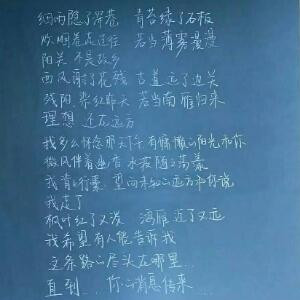 细雨隐了深巷 青苔绿了石板
陈酒巷 过往 若当薄雾漫漫
阳关 不是故乡
西风 了花残 古道 远了边关
残阳 红昨天 若当南雁归来
理想 还在远方
我多么怀念那天下午有慵懒的阳光和你
微风伴着幽香 水波随之荡漾
我背 行囊 望向未知的远方和你说
我走了
枫叶红了又泼 鸿雁近了又远
我希望有人能告诉我
这条路的尽头在哪里...
直到...你的消息传来...